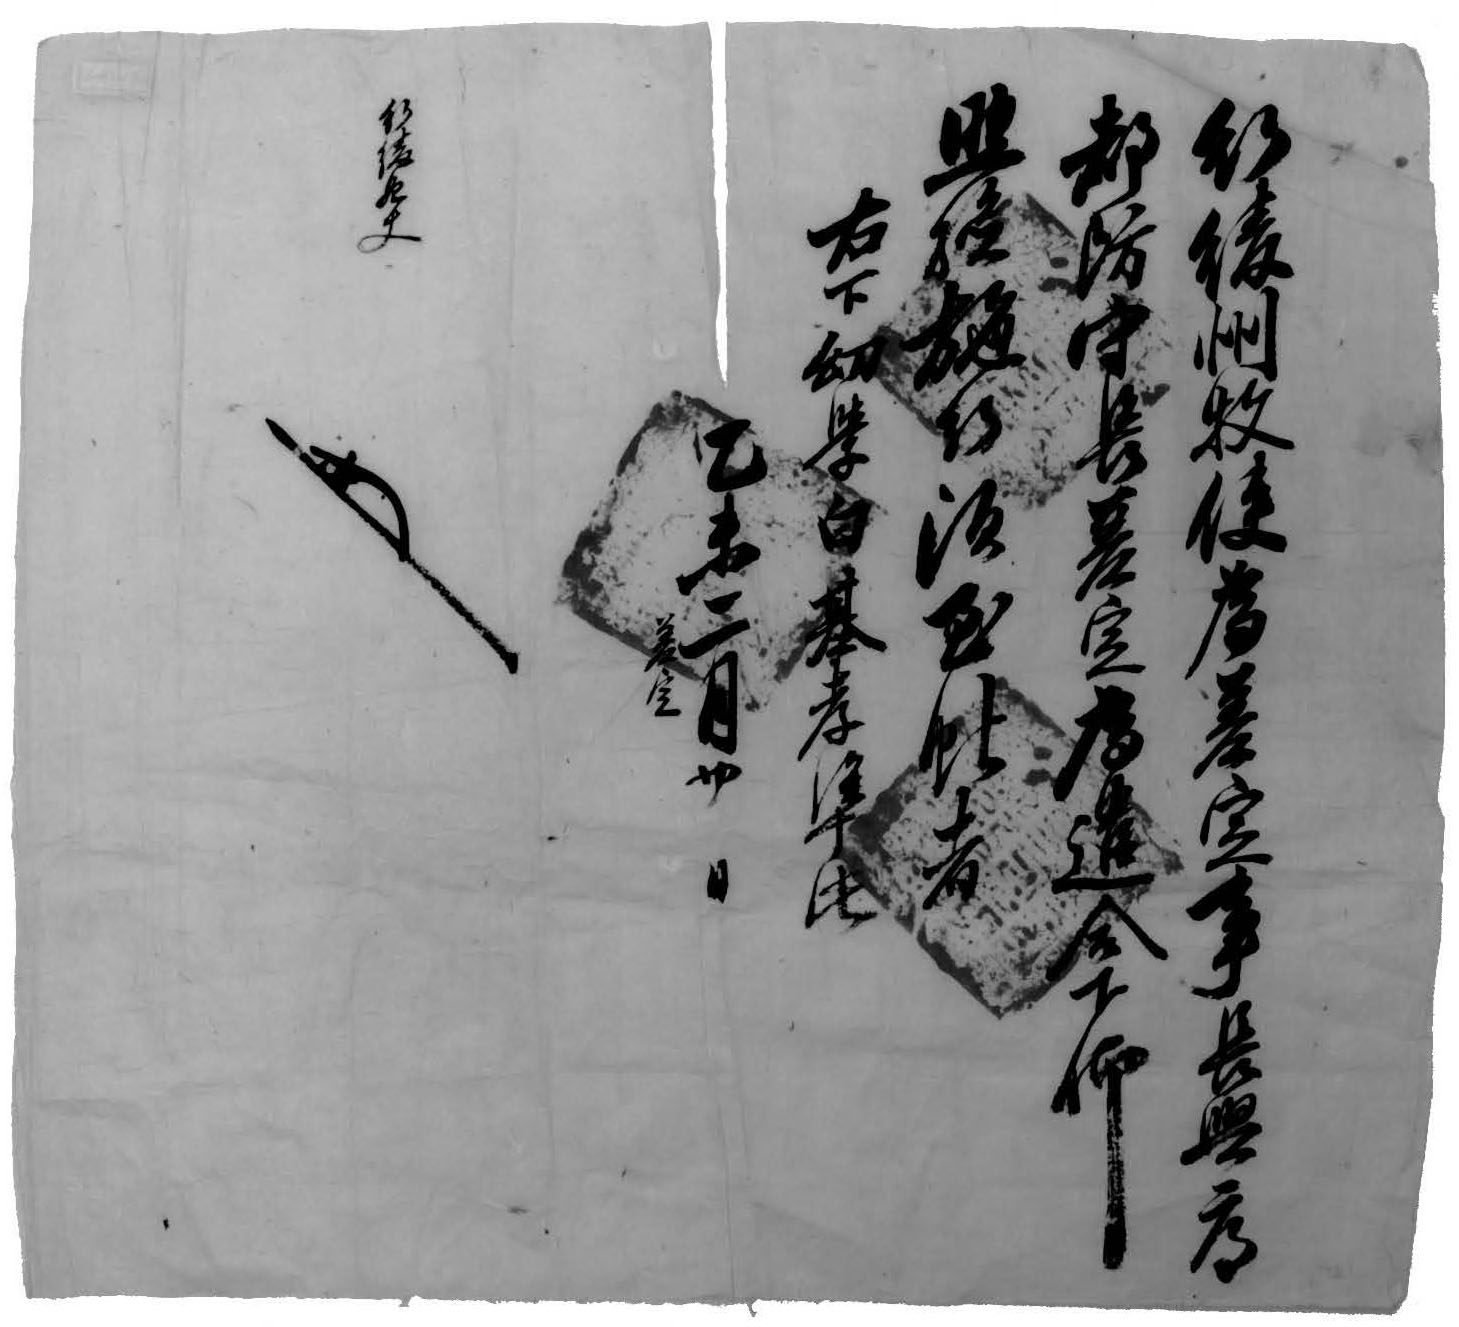 行綾州牧使爲差定事長興府
都防守長差定爲遣合下仰
照驗施行須至帖者
右下幼學白基孝準此
乙未二月卄日
差定
行綾州牧使